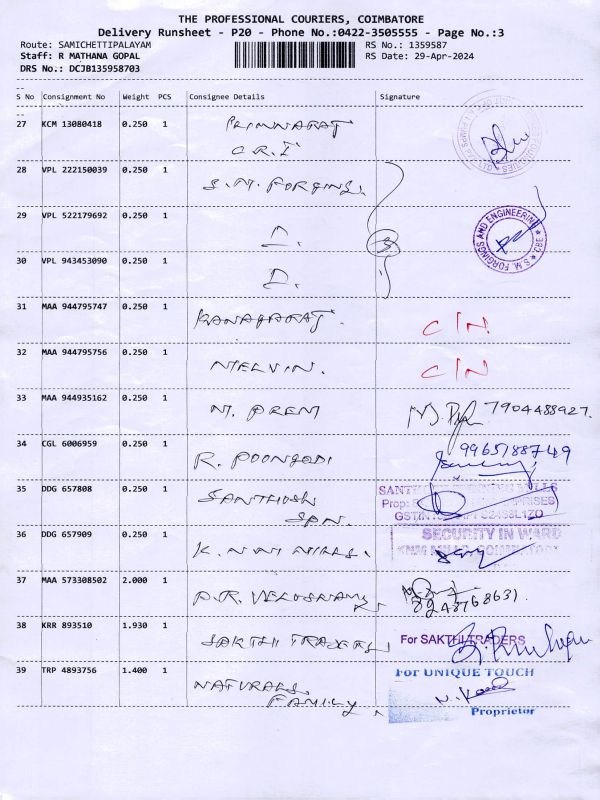 THE PROFESSIONAL COURIERS, COIMBATORE
Delivery Runsheet - P20 - Phone No.:0422-3505555 - Page No.:3
Route: SAMICHETTIPALAYAM
RS No.: 1359587
Staff: R MATHANA GOPAL
RS Date: 29-Apr-2024
DRS No.: DCJB135958703
S No Consignment No Weight PCS Consignee Details Signature
27 KCM 13080418 0.250 1
C.R.I
28 VPL 222150039 0.250 1 S.M. FORGINGS.
29 VPL 522179692 0.250 1
30 VPL 943453090 0.250 1
S.M. FORGINGS AND ENGINEERING CBE
31 MAA 944795747 0.250 1 C/N
32 MAA 944795756 0.250 1 MELVIN. C/N
33 MAA 944935162 0.250 1 M. PREM 7904488927.
34 CGL 6006959 0.250 1 R. POONGODI 9965188749
35 DDG 657808 0.250 1 SANTHOSH
SPN.
36 DDG 657909 0.250 1 SECURITY IN WARD
37 MAA 573308502 2.000 1 P.R. VELUSWAMY
38 KRR 893510 1.930 1 SAKTHI TRADERS For SAKTHI TRADERS
39 TRP 4893756 1.400 1 NATURALS
FAMILY
For UNIQUE TOUCH
Proprietor